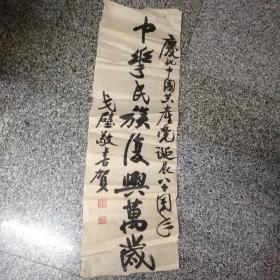 慶祝中國共產党誕辰八十周年
中華民族復興萬歲
敬書賀